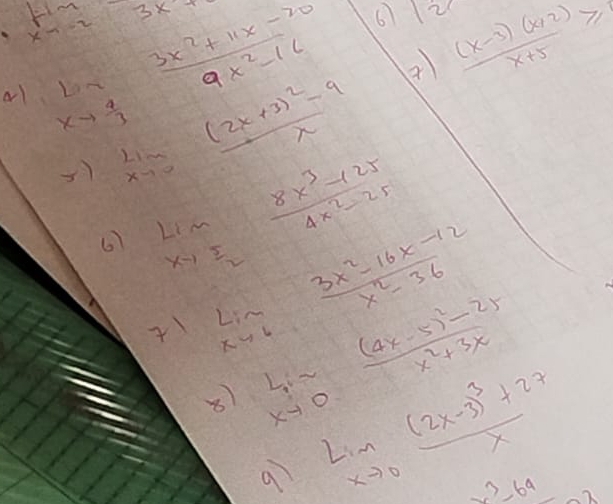 Lim x→-2 3x
4) Lim x→4/3 (3x²+11x-20)/(9x²-16)
5) Lim x→0 ((2x+3)²-9)/x
6) Lim x→5/2 (8x³-125)/(4x²-25)
7) Lim x→6 (3x²-16x-12)/(x²-36)
8) Lim x→0 ((4x-5)²-25)/(x²+3x)
9) Lim x→0 ((2x-3)³+27)/x
x³-64
6)
7) (x-3)(x+2)/(x+5) ≥